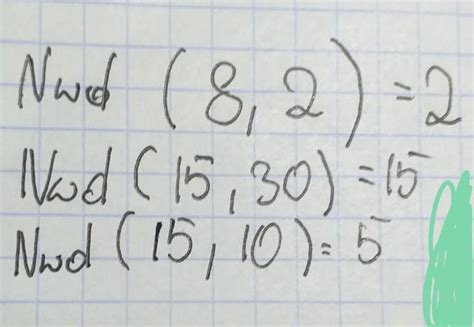 Nwd (8, 2) = 2
Nwd (15, 30) = 15
Nwd (15, 10) = 5